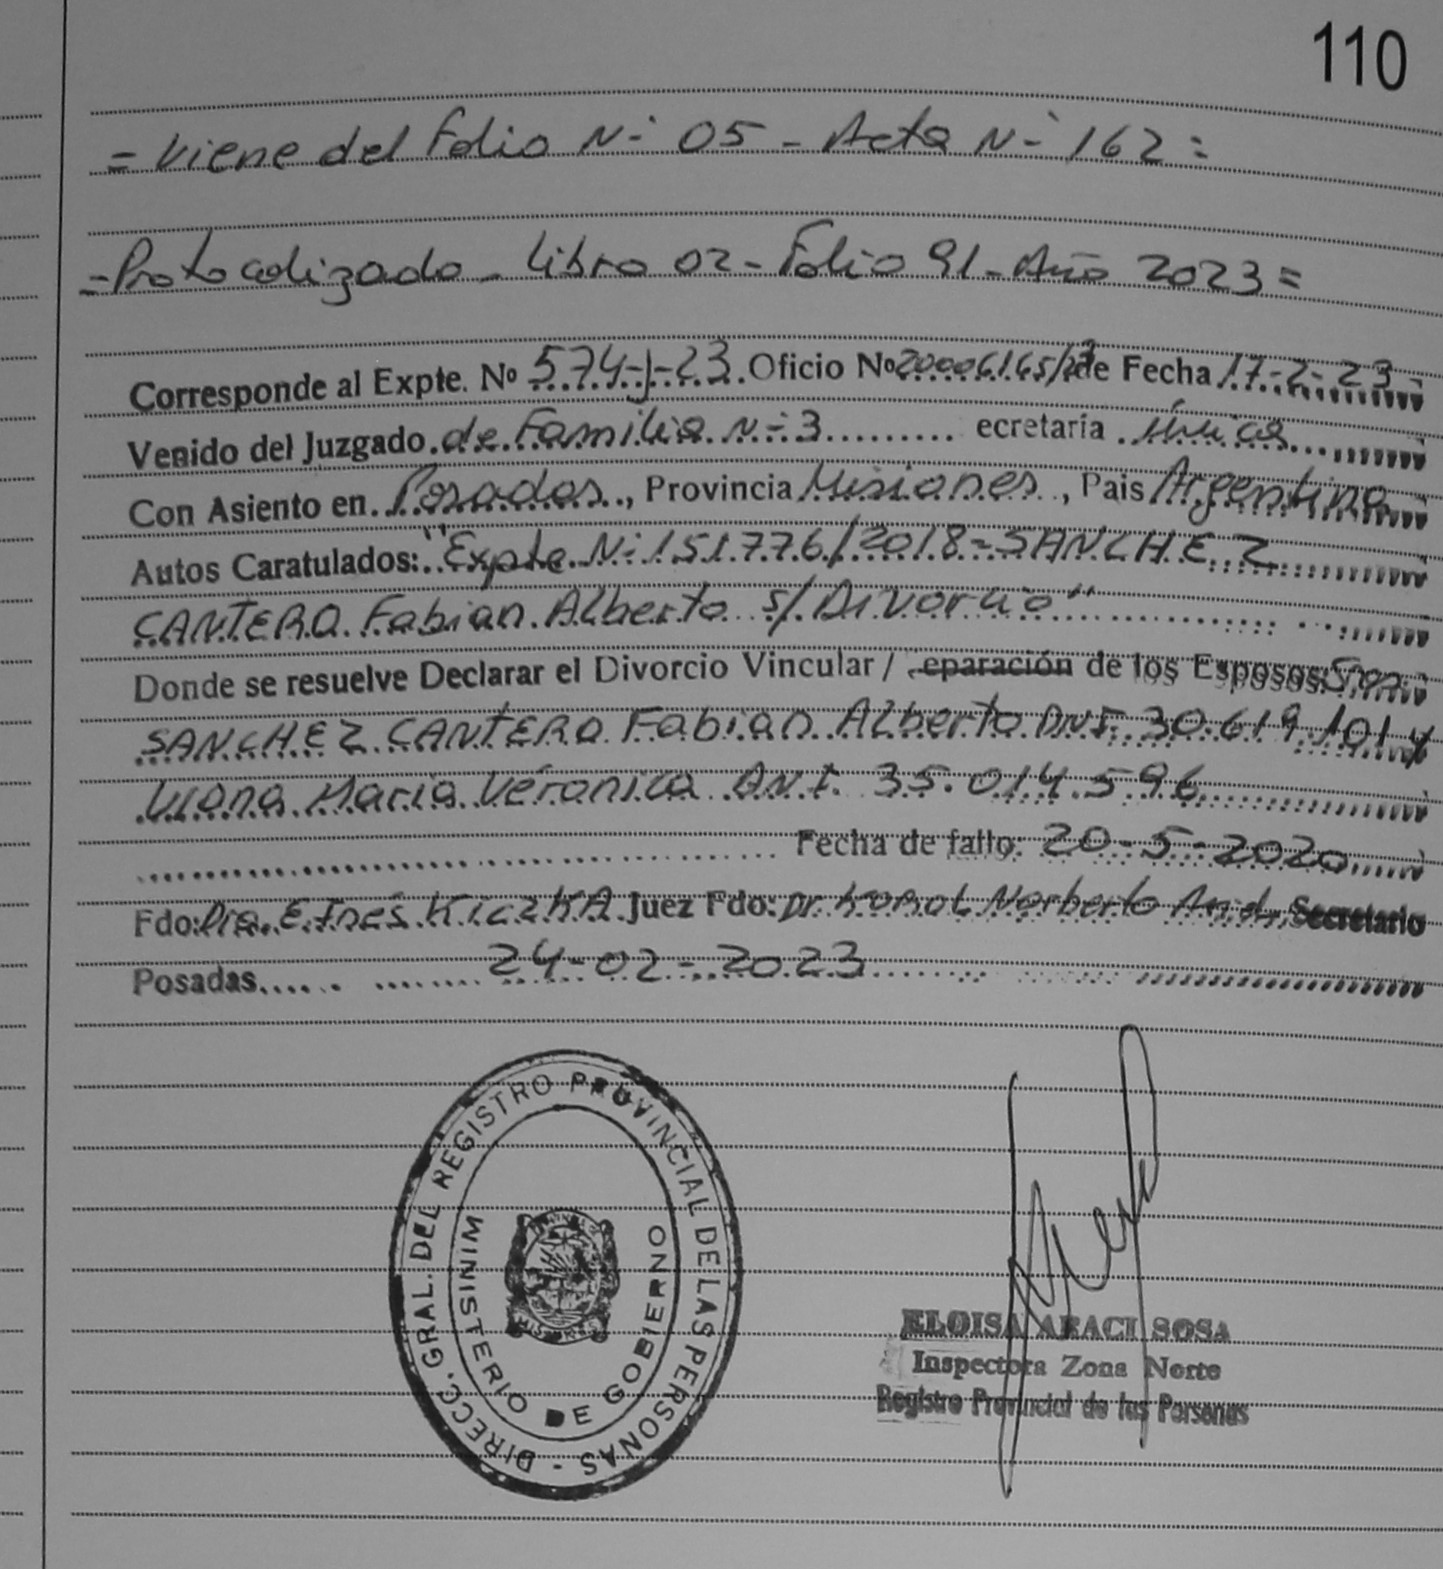 110
= Viene del Folio N- 05 - Acta N- 162 =
- Protocolizado - Libro 02 - Folio 91 - Año 2023 =
Corresponde al Expte. Nº 574-J-23. Oficio Nº 20006165/23 de Fecha 17-2-23-
Venido del Juzgado de Familia N-3 ecretaría única
Con Asiento en Posadas, Provincia Misiones, Pais Argentina
Autos Caratulados: "Expte N-151776/2018-SANCHEZ
CANTERO Fabian Alberto s/ Divorcio"
Donde se resuelve Declarar el Divorcio Vincular / eparación de los Esposos: Sres.
SANCHEZ CANTERO Fabian Alberto DNI 30.619.101 y
Viana Maria Veronica DNI. 35.014.596
Fecha de fallo: 20-5-2020
Fdo: Dra. E. Inés Kiczka Juez Fdo: Dr Norberto Secretario
Posadas 24-02-2023
DIRECC. GRAL. DEL REGISTRO PROVINCIAL DE LAS PERSONAS -
MINISTERIO DE GOBIERNO
ELOISA ARACI SOSA
Inspectora Zona Norte
Registro Provincial de las Personas